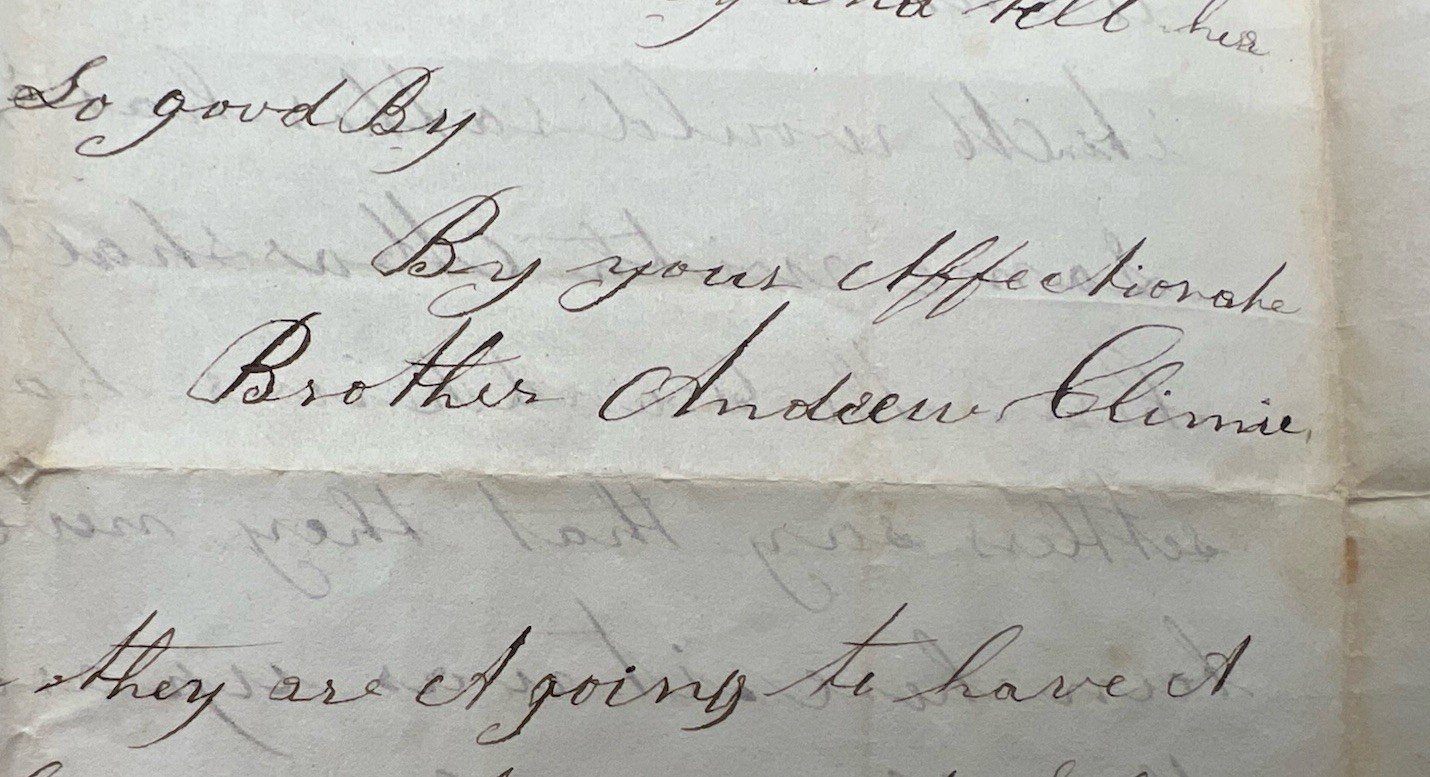 and tell her
So good By
By your Affectionate
Brother Andrew Climie
they are A going to have A